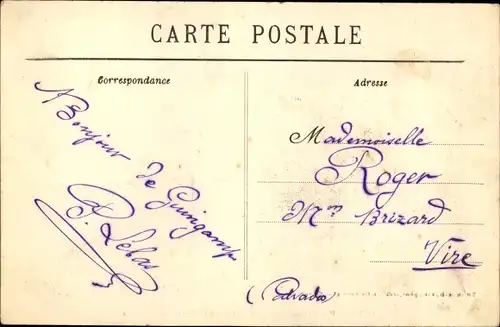 CARTE POSTALE
Correspondance
Bonjour
de Guingamp
P. Lebas
Adresse
Mademoiselle
Roger
Mon Brizard
Vire
(Calvados)